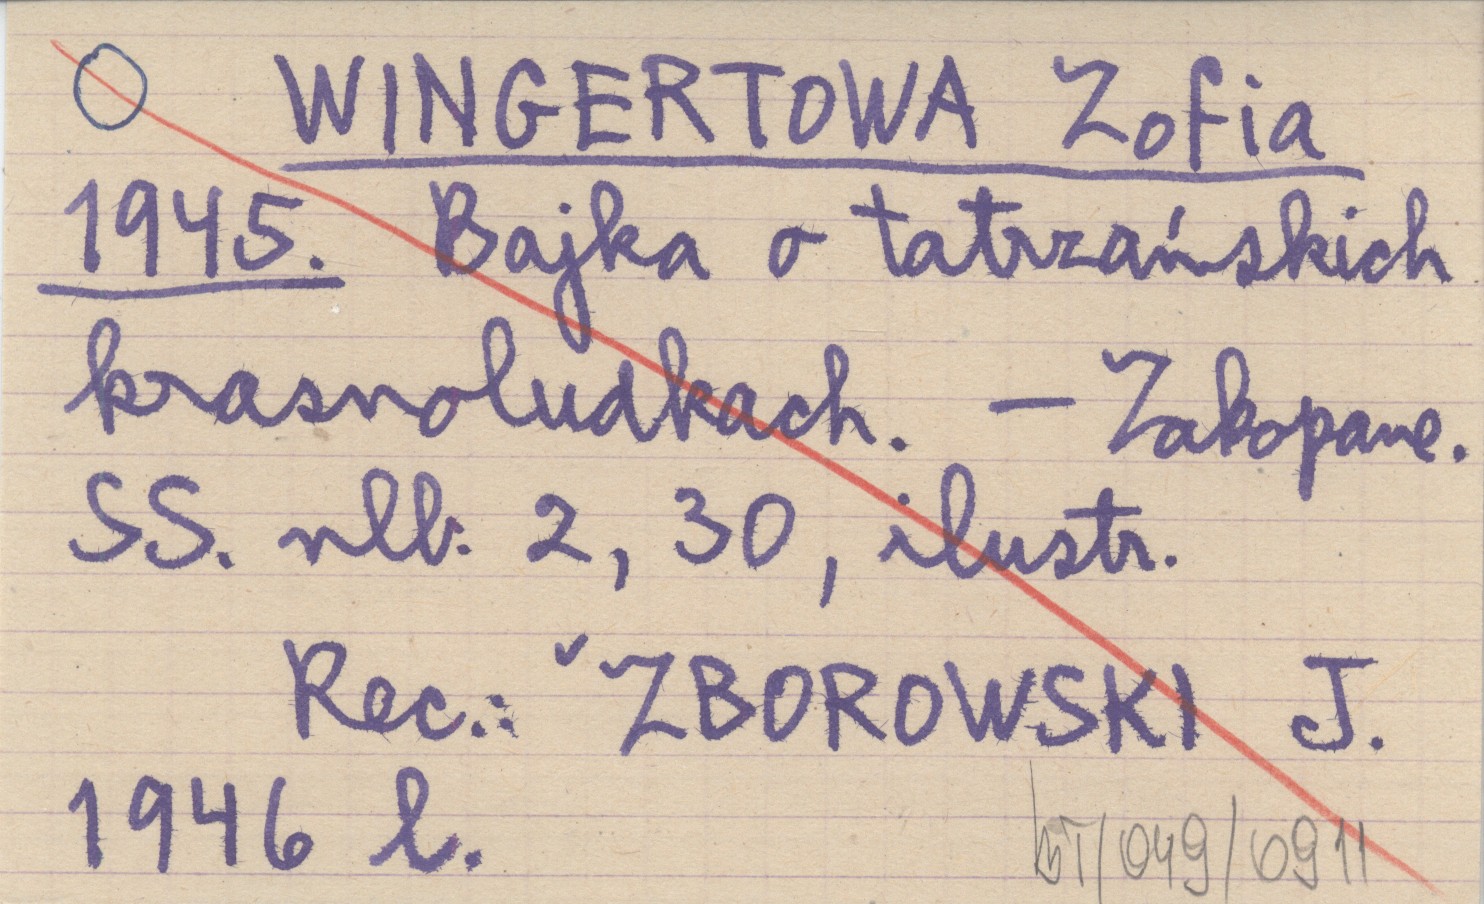 WINGERTOWA Zofia
1945. Bajka o tatrzańskich
krasnoludkach. — Zakopane.
SS. nlb. 2, 30, ilustr.
Rec.: ZBOROWSKI J.
1946 l.
BT/049/0911